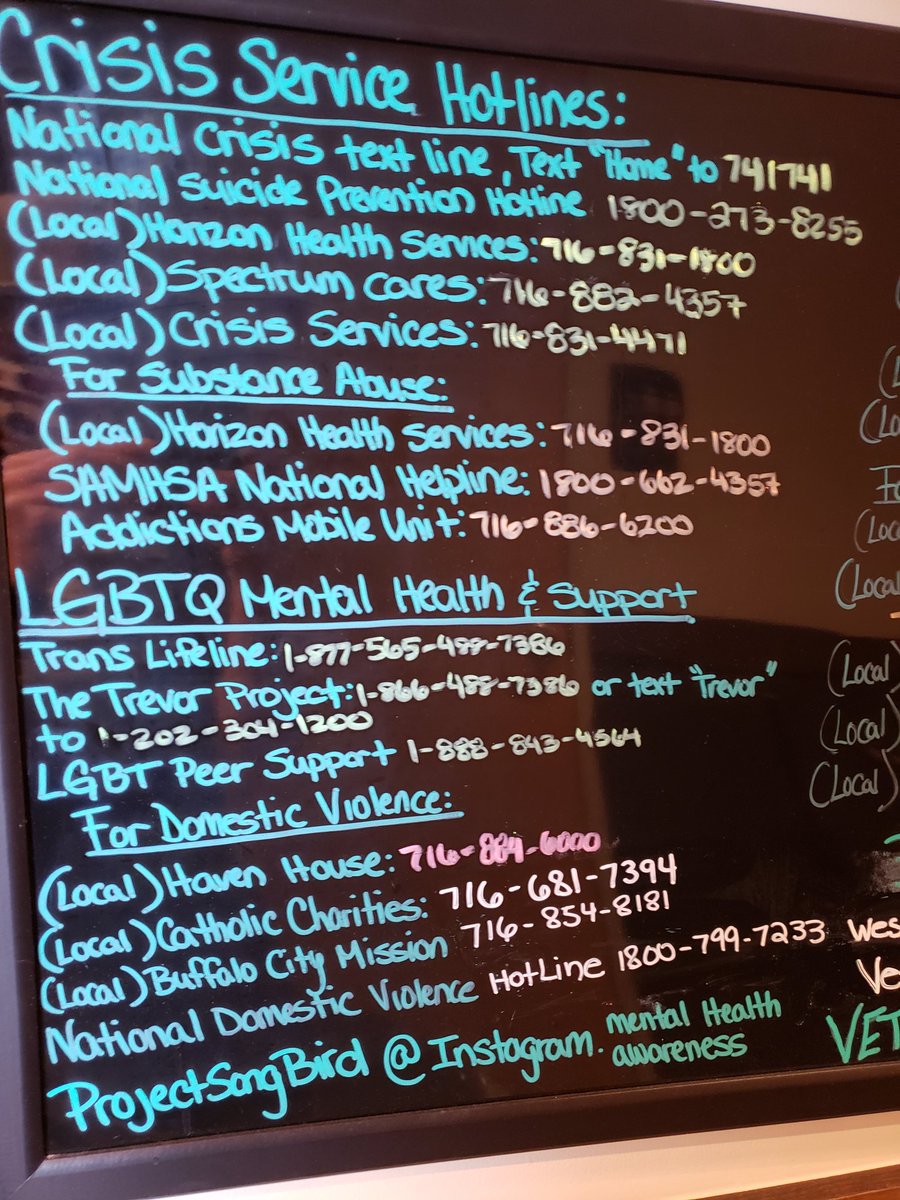 Crisis Service Hotlines:
National Crisis text line, Text "Home" to 741741
National Suicide Prevention Hotline 1800-273-8255
(Local) Horizon Health Services: 716-831-1800
(Local) Spectrum Cares: 716-882-4357
(Local) Crisis Services: 716-831-4471
For Substance Abuse:
(Local) Horizon Health Services: 716-831-1800
SAMHSA National Helpline: 1800-662-4357
Addictions Mobile Unit: 716-886-6200
LGBTQ Mental Health & Support
Trans Lifeline: 1-877-565-488-7386
The Trevor Project: 1-866-488-7386 or text "Trevor"
to 1-202-304-1200
LGBT Peer Support 1-888-843-4564
For Domestic Violence:
(Local) Haven House: 716-884-6000
(Local) Catholic Charities: 716-681-7394
(Local) Buffalo City Mission 716-854-8181
National Domestic Violence HotLine 1800-799-7233
ProjectSongBird @ Instagram. mental Health
awareness
(Local
(Local
(Local)
(Local)
(Local)
Wes
Ve
VET